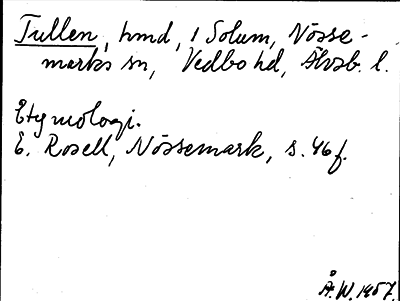 Tullen, hmd, i Solum, Nösse-
marks sn, Vedbo hd, Älvsb. l.
Etymologi.
E. Rosell, Nössemark, s. 46 f.
Å. W. 1957.